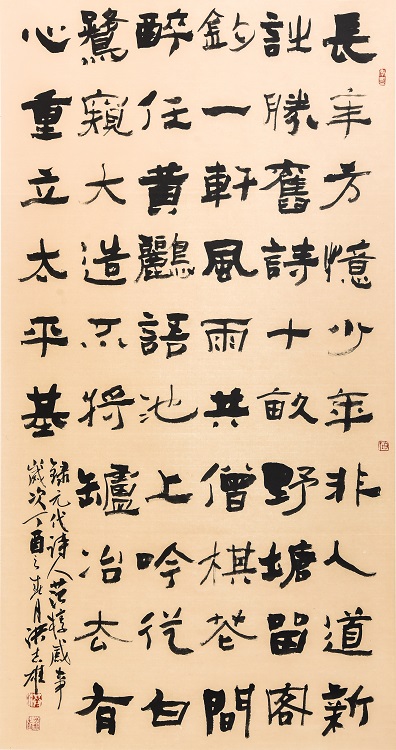 長年方憶少年非人道新
詩勝舊詩十畝野塘留客
釣一軒風雨共僧棋花間
醉任黃鸝語池上吟從白
鷺窺大造不將罏冶去有
心重立太平基
録元代诗人范感事
歲次丁酉之春月